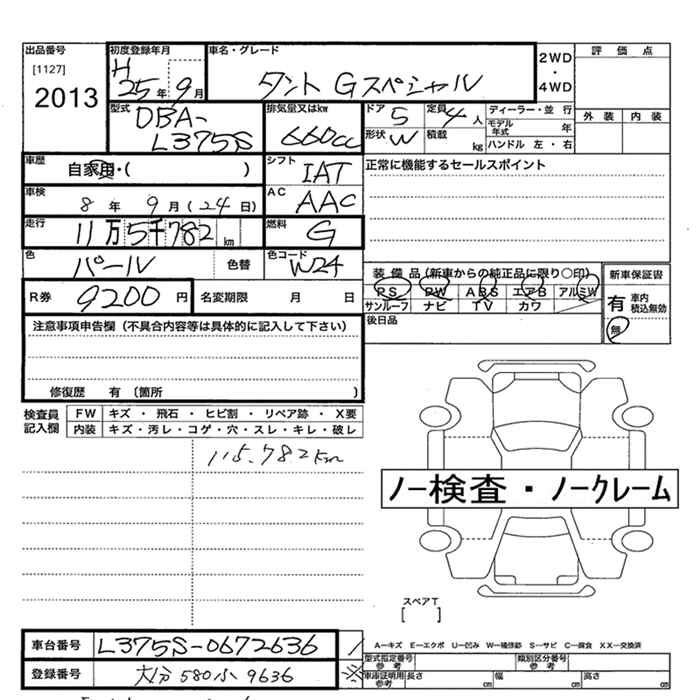 出品番号 初度登録年月 車名・グレード 評価点
[1127] H 25年 9月 タント Gスペシャル 2WD・4WD
2013
型式 DBA-L375S 排気量又はkw 660cc ドア 5 定員 4人 ディーラー・並行 外装 内装
形状 W 積載 kg モデル年式 年
ハンドル 左・右
車歴 自家用・( ) シフト IAT 正常に機能するセールスポイント
車検 8年 9月 (24日) AC AAC
走行 11万5千782km 燃料 G
色 パール 色替 色コード W24
装備品(新車からの純正品に限り○印) 新車保証書
R券 9200円 名変期限 月 日 PS PW ABS エアB アルミW 有 車内 積込無効
サンルーフ ナビ TV カワ
後日品 無
注意事項申告欄(不具合内容等は具体的に記入して下さい)
修復歴 有(箇所 )
検査員記入欄 FW キズ・飛石・ヒビ割・リペア跡・X要
内装 キズ・汚レ・コゲ・穴・スレ・キレ・破レ
115.782km
ノー検査・ノークレーム
スペアT
[ ]
車台番号 L375S-0672636
A－キズ E－エクボ U－凹み W－補修跡 S－サビ C－腐食 XX－交換済
型式指定番号 参考 類別区分番号 参考
登録番号 大分 580 9636
車庫証明用 参考 長さ cm 幅 cm 高さ cm